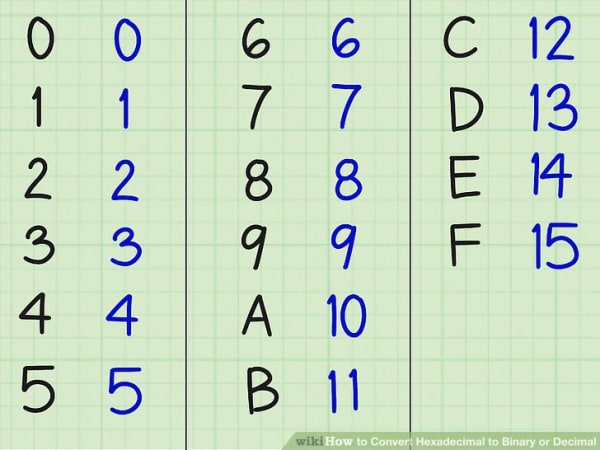 0 0
1 1
2 2
3 3
4 4
5 5
6 6
7 7
8 8
9 9
A 10
B 11
C 12
D 13
E 14
F 15
wikiHow to Convert Hexadecimal to Binary or Decimal